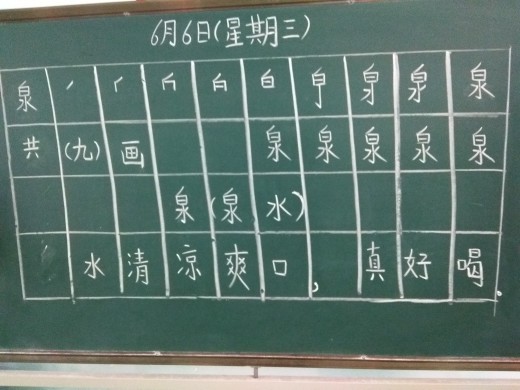 6月6日(星期三)
泉 丶 泉 泉 泉
共 (九) 画 泉 泉 泉 泉 泉
泉 (泉 水)
水 清 凉 爽 口 , 真 好 喝 .